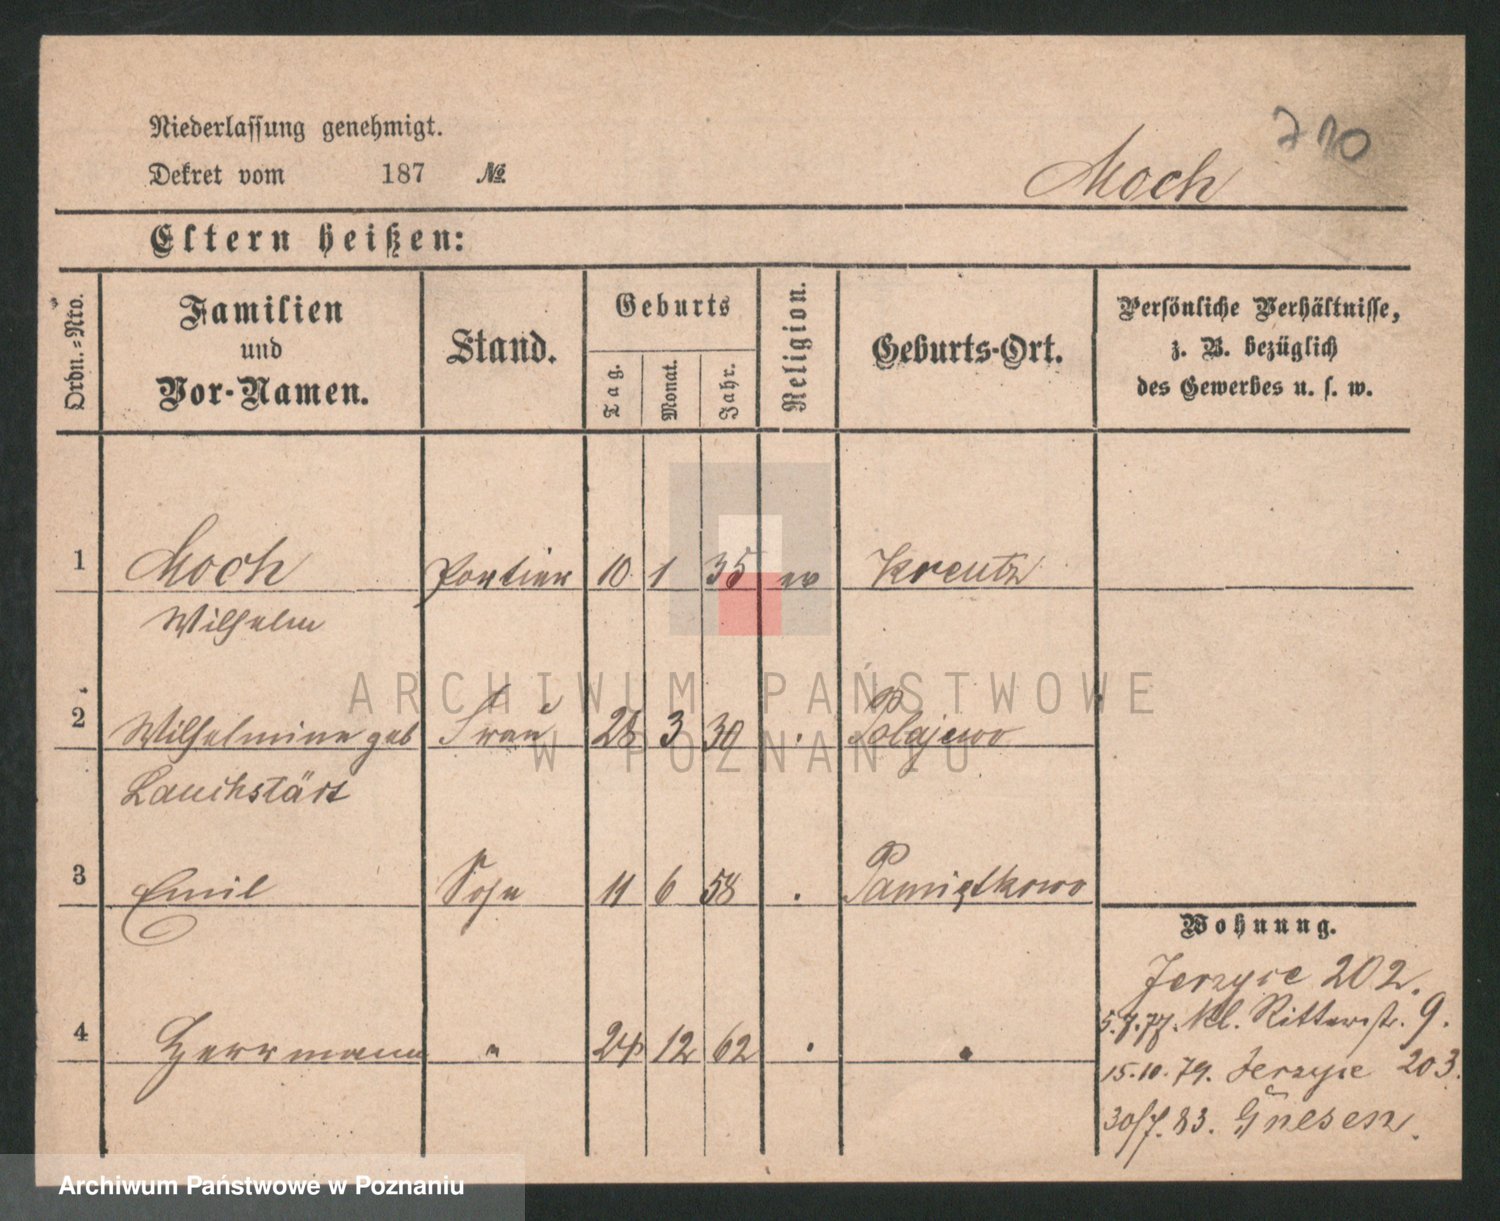 710
Niederlassung genehmigt.
Dekret vom 187 №
Moch
Eltern heißen:
Ordn.=Nro.
Familien und Vor-Namen.
Stand.
Geburts
Tag.
Monat.
Jahr.
Religion.
Geburts-Ort.
Persönliche Verhältnisse,
z. B. bezüglich
des Gewerbes u. s. w.
1 Moch Portier 10 1 35 ev Kreutz
Wilhelm
2 Wilhelmine geb Frau 28 3 30 . Polajewo
Lauchstärt
3 Emil Sohn 11 6 58 . Pamiątkowo
4 Herrmann " 24 12 62 . "
Wohnung.
Jerzyce 202.
5.7.77. Kl. Ritterstr. 9.
15.10.79. Jerzyce 203.
30/7.83. Gnesen.
ARCHIWUM PAŃSTWOWE
W POZNANIU
Archiwum Państwowe w Poznaniu